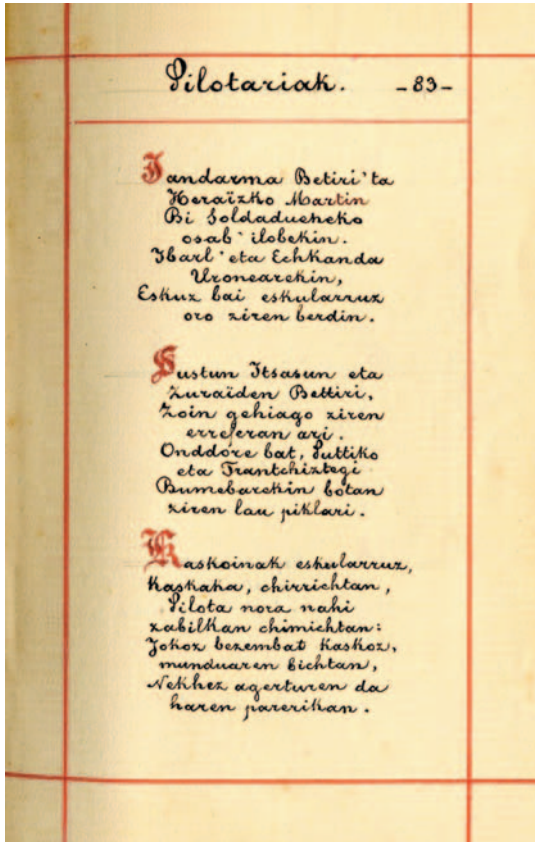 Pilotariak. -83-
Jandarma Betiri 'ta
Heraïzko Martin
Bi Soldadueneko
osab' ilobekin.
Ibarl' eta Echkanda
Uronearekin,
Eskuz bai eskularruz
oro ziren berdin.
Sustun Itsasun eta
Zuraïden Bettiri,
Zoin gehiago ziren
erreferan ari.
Onddore bat, Puttiko
eta Trantchiztegi
Bumebarekin botan
ziren lau piklari.
Kaskoinak eskularruz,
Kaskaka, chirrichtan,
Pilota nora nahi
zabilkan chimichtan:
Jokoz bezembat kaskoz,
munduaren bichtan,
Nekhez agerturen da
haren parerikan.